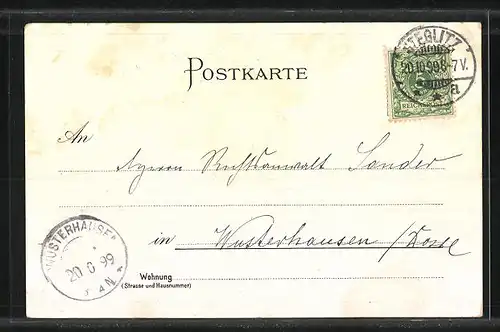 POSTKARTE
STEGLITZ
20.10.99.6-7V.
REICHSPOST
An
Herrn Rechtsanwalt Sander
in Wusterhausen / Dosse
WUSTERHAUSEN
20 99
Wohnung
(Strasse und Hausnummer)